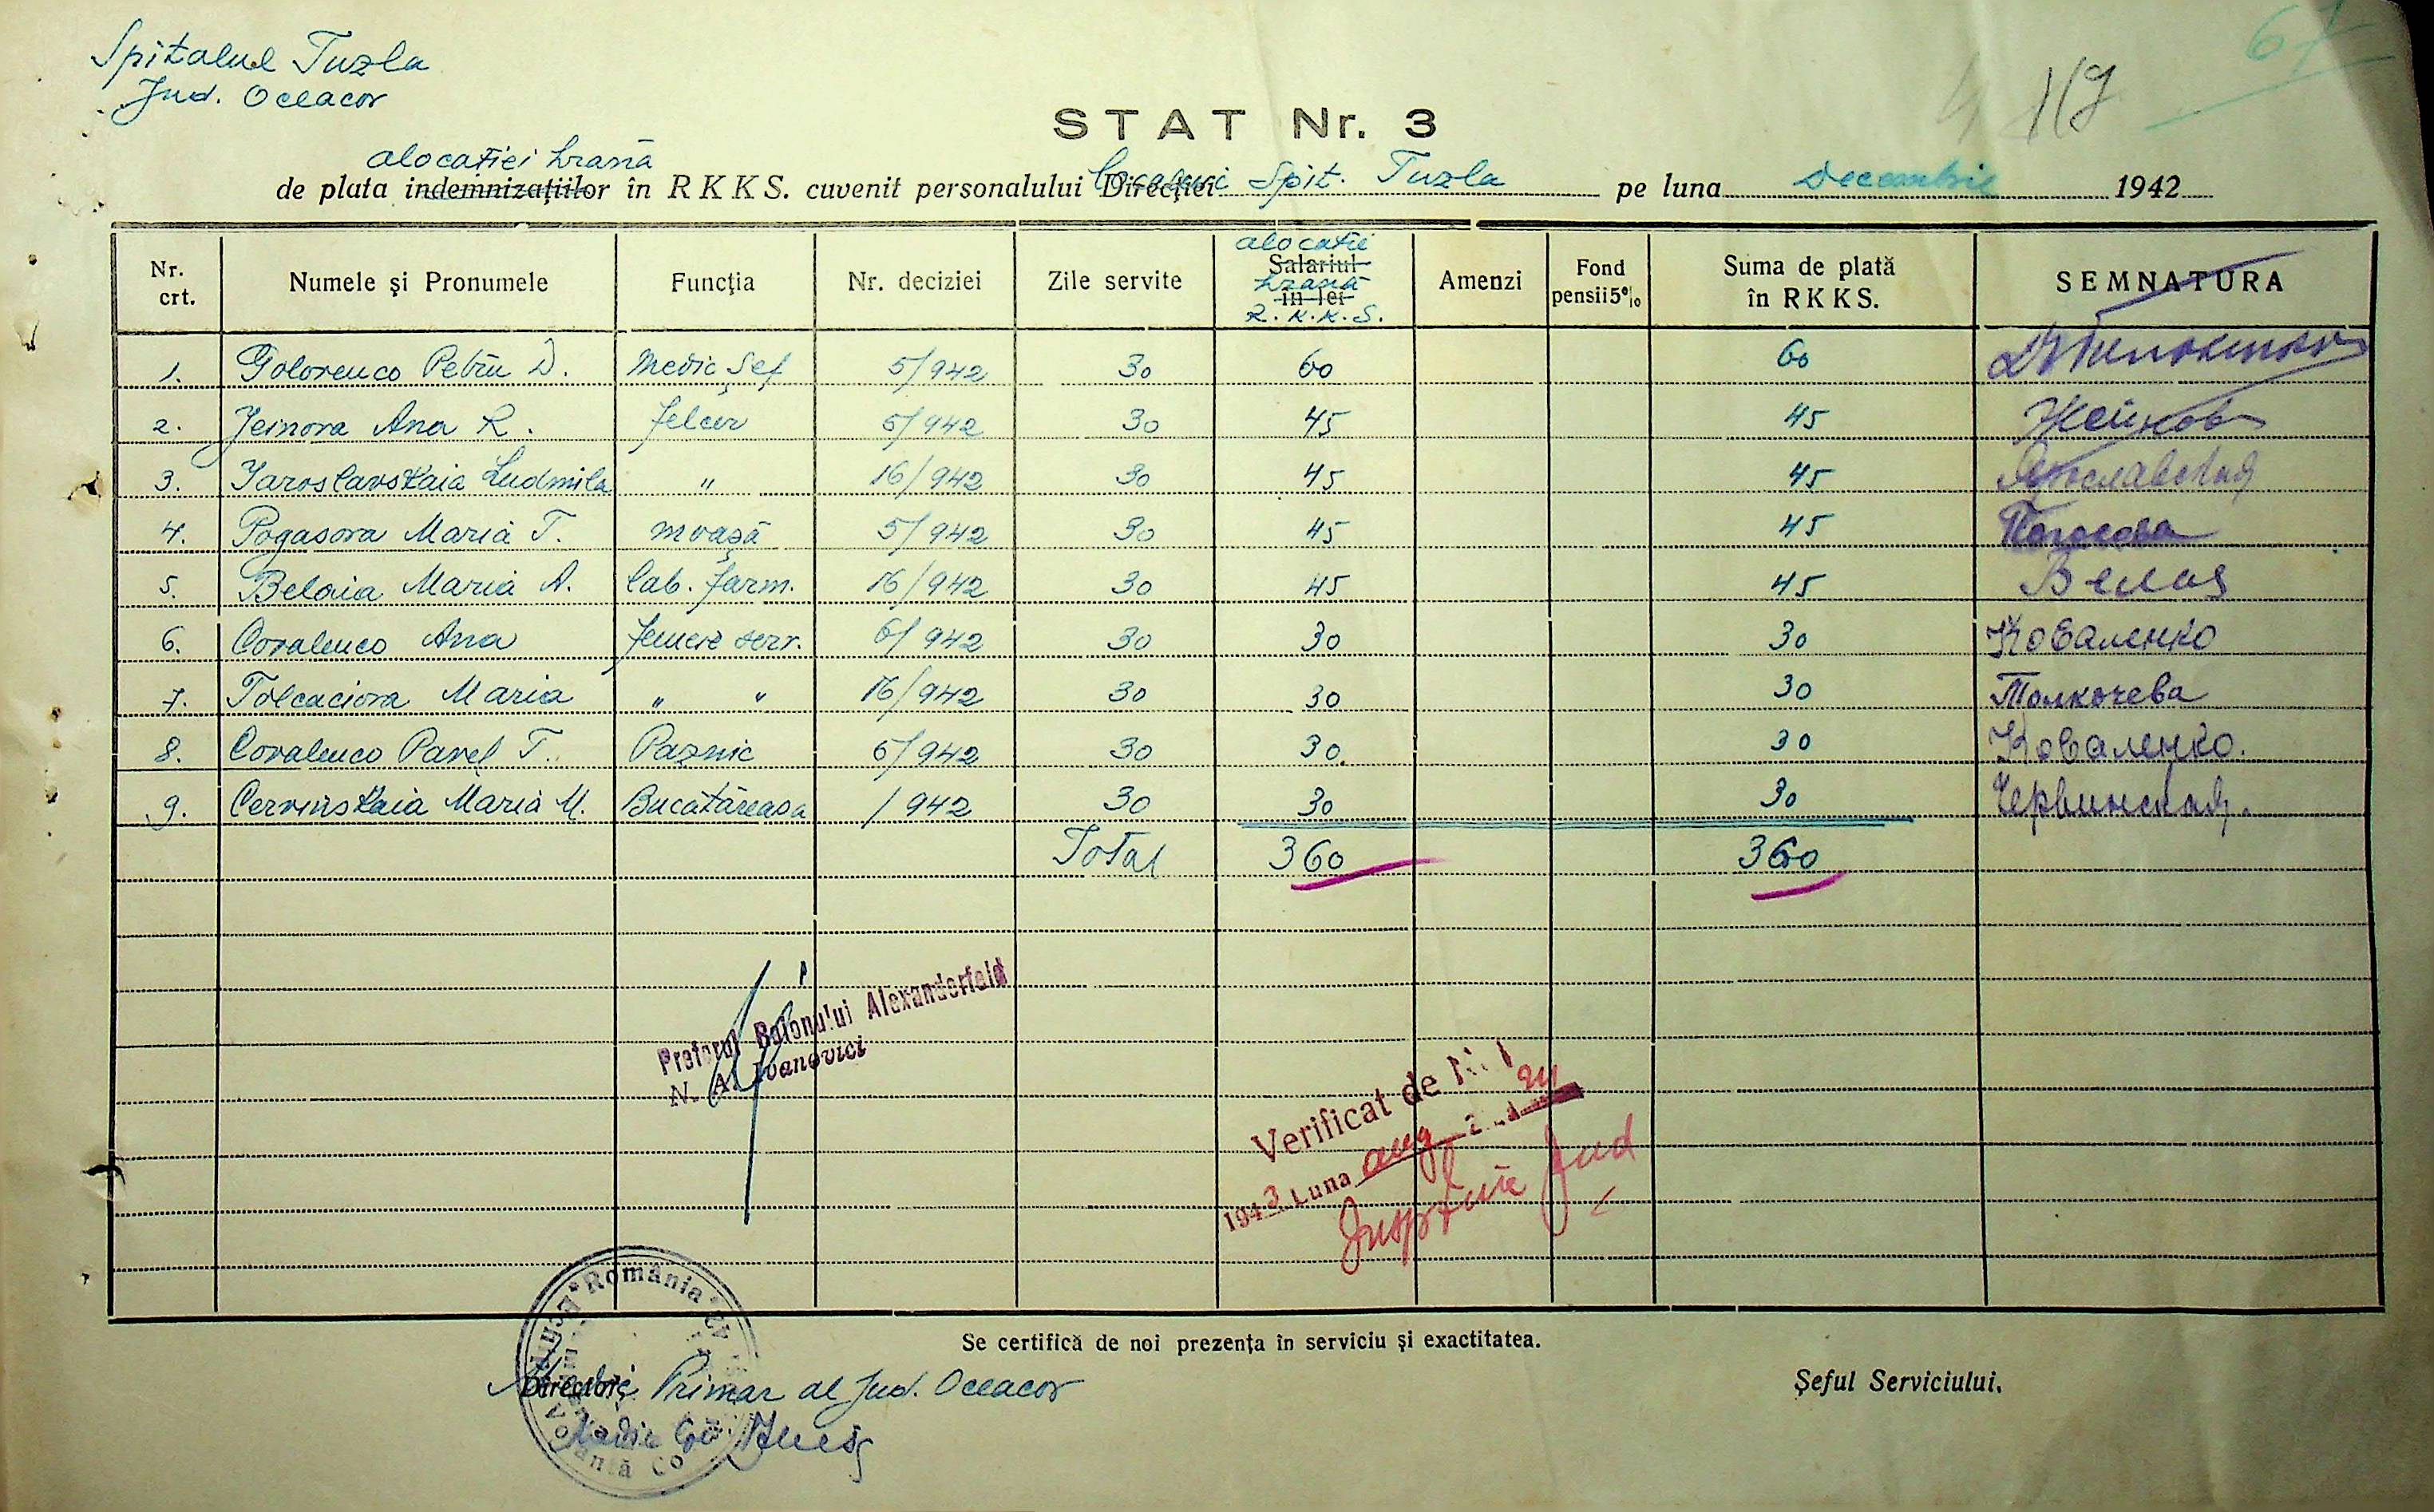 Spitalul Tuzla
Jud. Oceacov
67
119
STAT Nr. 3
alocației hrană
de plata indemnizațiilor în RKKS. cuvenit personalului Direcției Spit. Tuzla pe luna Decembrie 1942
Nr. crt. Numele și Pronumele Funcția Nr. deciziei Zile servite alocație Salariul hrană în lei R.K.K.S. Amenzi Fond pensii 5% Suma de plată în RKKS. SEMNATURA
1. Golovenco Petru D. Medic Șef 5/942 30 60 60
2. Jeinova Ana R. felcer 5/942 30 45 45 Жейнова
3. Iaroslavskaia Ludmila " 16/942 30 45 45 Ярославская
4. Pogasova Maria T. moașă 5/942 30 45 45 Погосова
5. Belaia Maria A. lab. farm. 16/942 30 45 45 Белая
6. Covalenco Ana femeie serv. 6/942 30 30 30 Коваленко
7. Tolcaciova Maria " " 16/942 30 30 30 Толкачева
8. Covalenco Pavel T. Paznic 6/942 30 30. 30 Коваленко.
9. Cervinskaia Maria M. Bucătăreasa /942 30 30 30 Червинская.
Total 360 360
Pretorul Raionului Alexanderfeld
N. A. Ivanovici
Verificat de
1943 Luna aug
Jud
România
Se certifică de noi prezența în serviciu și exactitatea.
Director, Primar al Jud. Oceacov
Șeful Serviciului,